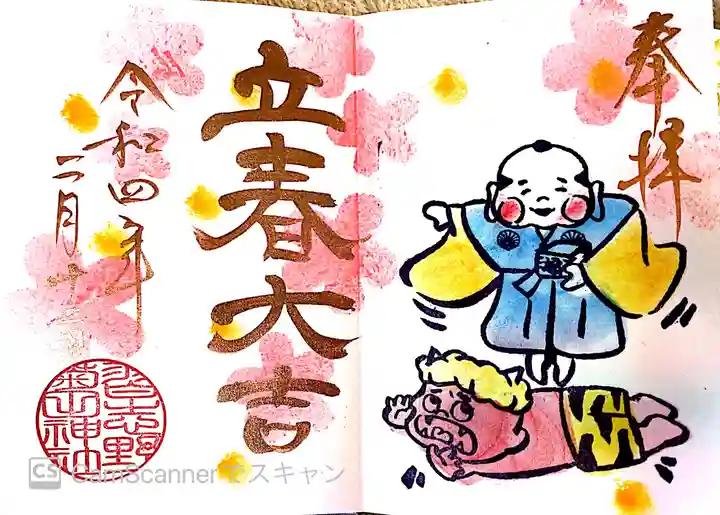 奉拝
立春大吉
令和四年
二月十二
CamScannerでスキャン
CS